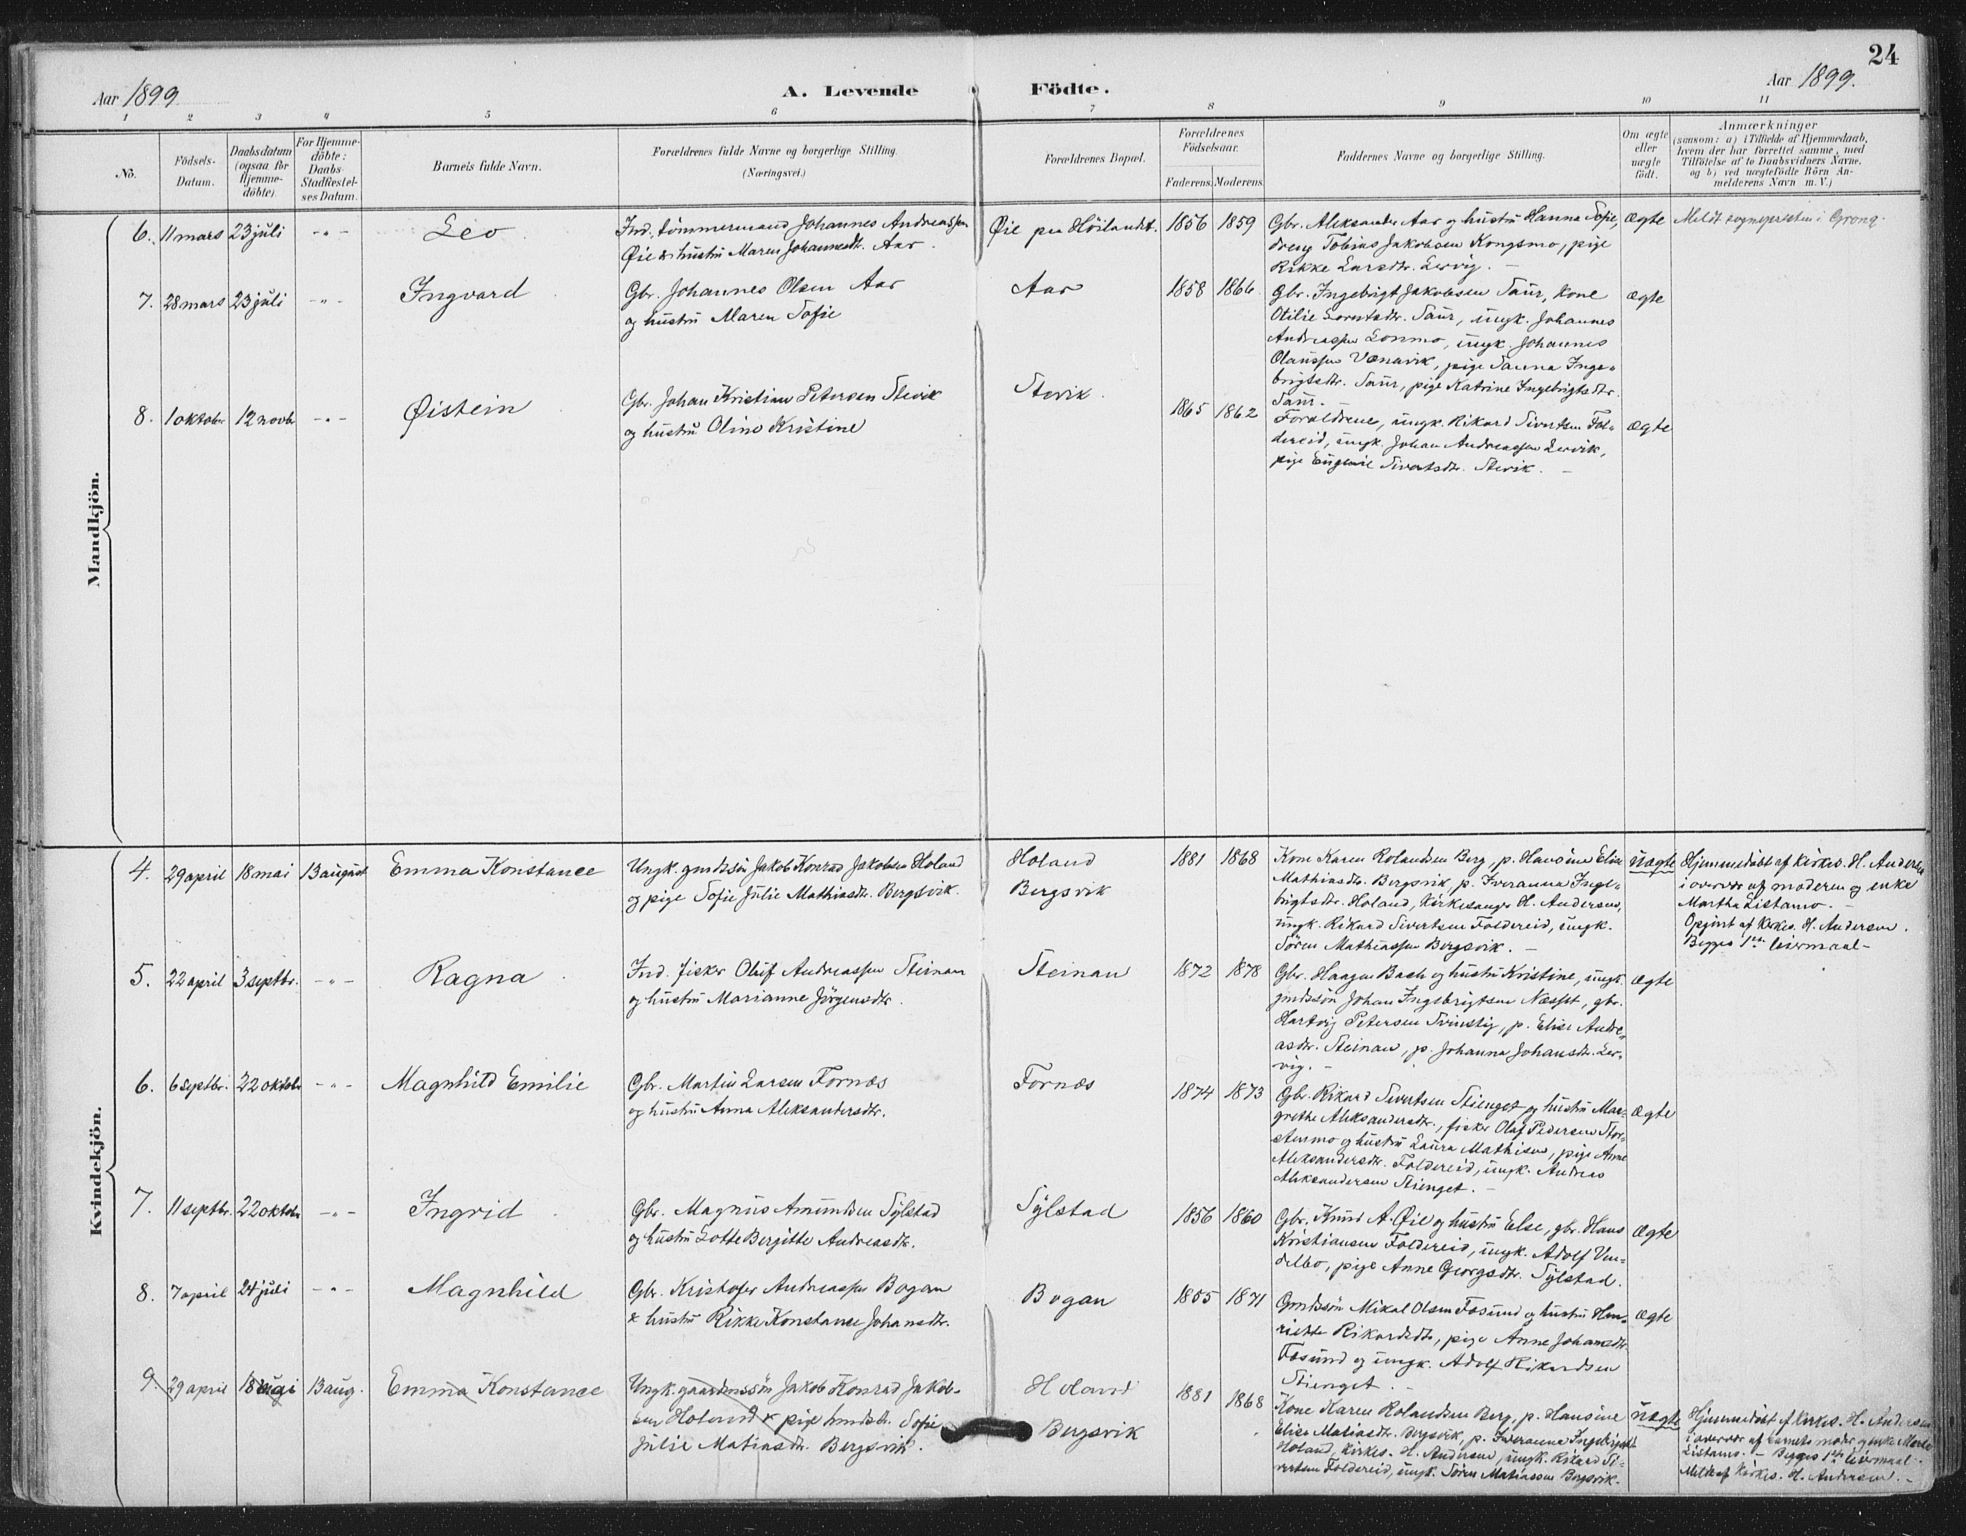 24
Aar 1899
A. Levende Födte.
Aar 1899.
1 2 3 4 5 6 7 8 9 10 11
No.
Födsels-
Datum.
Daabsdatum
(ogsaa for
Hjemme-
döbte).
For Hjemme-
döbte:
Daabs-
Stadfæstel-
ses Datum.
Barnets fulde Navn.
Forældrenes fulde Navne og borgerlige Stilling.
(Næringsvei.)
Forældrenes Bopæl.
Forældrenes
Födselsaar.
Faderens. Moderens.
Faddernes Navne og borgerlige Stilling.
Om ægte
eller
uægte
födt.
Anmærkninger
(saasom: a) i Tilfælde af Hjemmedaab,
hvem der har forrettet samme, med
Tilföielse af to Daabsvidners Navne,
og b) ved uægtefödte Börn An-
melderens Navn m. V.)
Mandkjön.
6. 11 mars 23 juli -"- Leo
Ind. tömmermand Johannes Andreassen
Øie & hustru Maren Johannesdtr. Aar.
Øie paa Höilandet. 1856 1859
Gbr. Aleksander Aar og hustru Hanna Sofie,
dreng Tobias Jakobsen Kongsmo, pige
Rikke Larsdtr. Lervig. -
ægte
Meldt sognepresten i Grong.
7. 28 mars 23 juli -"- Ingvard
Gbr. Johannes Olsen Aar
og hustru Maren Sofie
Aar 1858 1866
Gbr. Ingebrigt Jakobsen Saur, kone
Otilie Lorntsdtr. Saur, ungk. Johannes
Andreassen Lonmo, ungk. Johannes
Olaussen Vænavik, pige Sauna Inge-
brigtsdtr. Saur, pige Katrine Ingebrigtsdtr.
Saur. -
ægte
8. 1 oktober 12 novbr -"- Øistein
Gbr. Johan Kristian Petersen Stevik
og hustru Oline Kristine
Stevik 1865 1862
Forældrene, ungk. Rikard Sivertsen Fol-
dereid, ungk. Johan Andreassen Lervik,
pige Eugenie Sivertsdtr. Stevik. -
ægte
Kvindekjön.
4. 29 april 18 mai 13 august Emma Konstance
Ungk. gmdssön Jakob Konrad Jakobsen Høland
og pige Sofie Julie Mathiasdtr. Bergsvik.
Høland
Bergsvik
1881 1868
Kone Karen Rolandsen Berg, p. Hansine Elise
Mathiasdtr. Bergsvik, p. Iveranna Inge-
brigtsdtr. Høland, kirkesanger H. Andersen,
ungk. Rikard Sivertsen Foldereid, ungk.
Søren Mathiassen Bergsvik. -
uægte
Hjemmedöbt af kirkes. H. Andersen
i overvær af moderen og enke
Martha Listamo. -
Opgivet af Kirkes. H. Andersen.
Begges 1ste leiermaal -
5. 22 april 3 septbr. -"- Ragna
Ind. fisker Oluf Andreassen Steinan
og hustru Marianne Jörgensdtr.
Steinan 1872 1878
Gbr. Haagen Bach og hustru Kristine, ungk.
gmdssön Johan Ingebrigtsen Næsset, gbr.
Hartvig Petersen Svinstig, p. Elise Andre-
asdtr. Steinan, p. Johanna Johansdtr. Ler-
vig. -
ægte
6. 6 septbr. 22 oktobr -"- Magnhild Emilie
Gbr. Martin Larsen Fornæs
og hustru Anna Aleksandersdtr.
Fornæs 1874 1873
Gbr. Rikard Sivertsen Stienget og hustru Mar-
grethe Aleksandersdtr., fisker Olaf Pedersen Stor-
stenmo og hustru Laura Mathisen, pige Anne
Aleksandersdtr. Foldereid, ungk. Andreas
Aleksandersen Stienget. -
ægte
7. 11 septbr. 22 oktobr -"- Ingrid
Gbr. Magnus Amundsen Sylstad
og hustru Lotte Bergitte Andreasdtr.
Sylstad 1856 1860
Gbr. Knud A. Øie og hustru Else, gbr. Hans
Kristiansen Foldereid, ungk. Adolf Ven-
delbo, pige Anne Georgsdtr. Sylstad.
ægte
8. 7 april 24 juli -"- Magnhild
Gbr. Kristofer Andreassen Bogan
& hustru Rikke Konstance Johansdtr.
Bogan 1855 1871
Gmdssön Mikal Olsen Fosund og hustru Hen-
riette Rikardsdtr, pige Anne Johansdtr.
Fosund og ungk. Adolf Rikardsen
Stienget. -
ægte
9. 29 april 18 mai 13 aug. Emma Konstance
Ungk. gaardmssön Jakob Konrad Jakob-
sen Høland & pige Sofie
Julie Matiasdtr. Bergsvik.
Høland
Bergsvik
1881 1868
Kone Karen Rolandsen Berg, p. Hansine
Elise Matiasdtr. Bergsvik, p. Iveranna Ingebrigtsdtr
Høland, Kirkes. H. Andersen, ungk. Rikard Si-
vertsen Foldereid, ungk. Søren Matiassen Bergsvik.
uægte
Hjemmedöbt af kirkes. H. Andersen
i overvær af barnets moder og enke Martha
Listamo. - Begges 1ste leiermaal.
Meldt af Kirkes. H. Andersen. -